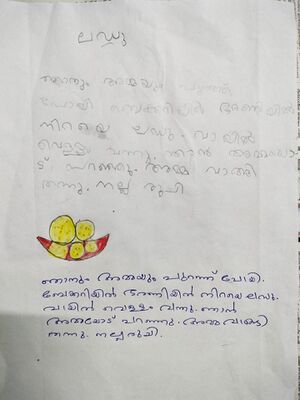 ലഡു
ഞാനും അമ്മയും പുറത്ത്
പോയി ബേക്കറിയിൽ ഭരണിയിൽ
നിറയെ ലഡു. വായിൽ
വെള്ളം വന്നു. ഞാൻ അമ്മയോ
ട് പറഞ്ഞു. അമ്മ വാങ്ങി
തന്നു. നല്ല രുചി
ഞാനും അമ്മയും പുറത്ത് പോയി.
ബേക്കറിയിൽ ഭരണിയിൽ നിറയെ ലഡു.
വായിൽ വെള്ളം വന്നു. ഞാൻ
അമ്മയോട് പറഞ്ഞു. അമ്മ വാങ്ങി
തന്നു. നല്ല രുചി.